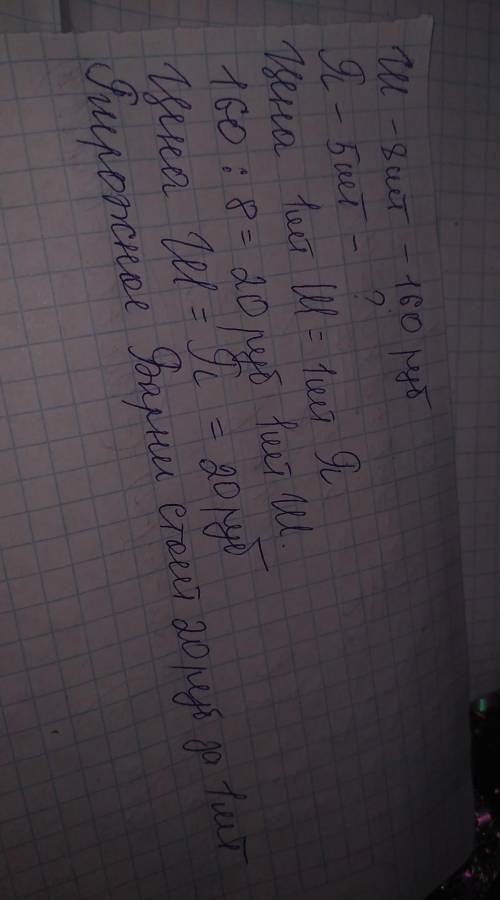 Ш - 8 шт - 160 руб
П - 5 шт - ?
Цена 1 шт Ш = 1 шт П
160 : 8 = 20 руб 1 шт Ш.
Цена Ш = П = 20 руб
Пирожное Барни стоит 20 руб за 1 шт